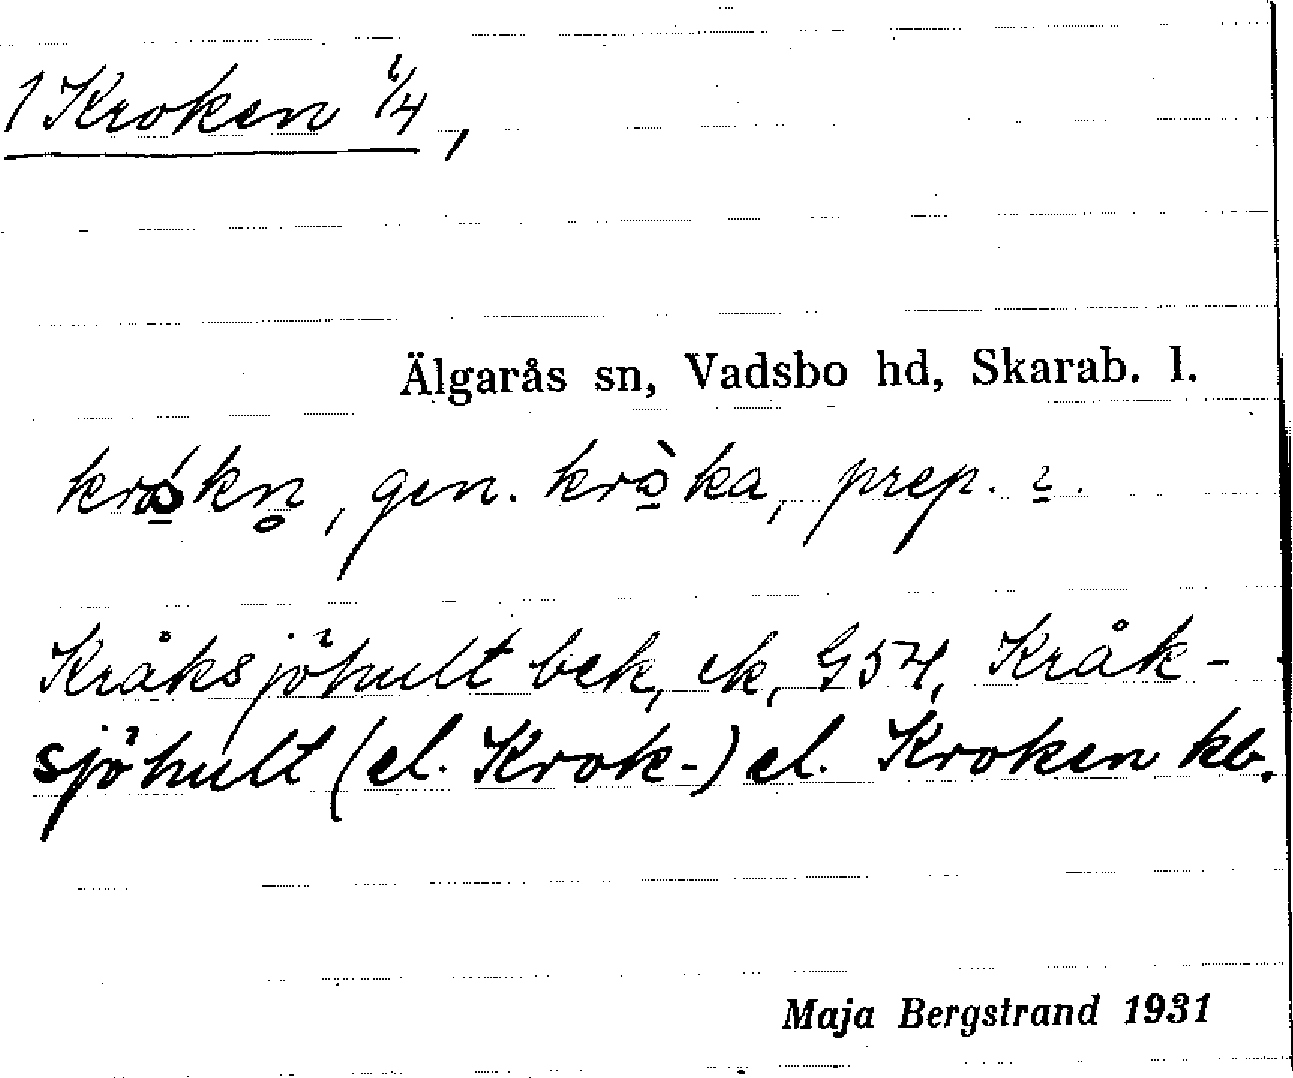 1 Kroken 1/4,
Älgarås sn, Vadsbo hd, Skarab. l.
krókn̥, gen. kròka, prep. ɩ.
Kråksjöhult bek, ek, G54, Kråk-
sjöhult (el. Krok-) el. Kroken kb.
Maja Bergstrand 1931